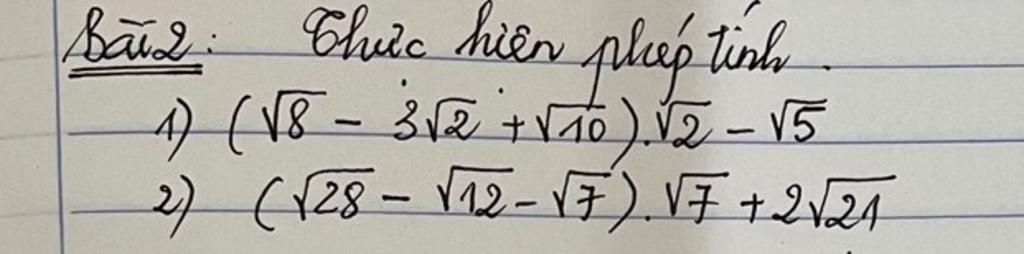 Bài 2: Thực hiện phép tính.
1) (√8 - 3√2 + √10).√2 - √5
2) (√28 - √12 - √7).√7 + 2√21